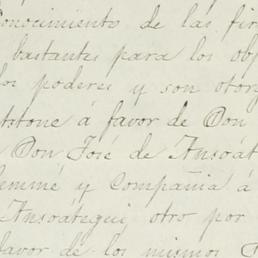 onocimiento de las fir
bastantes para los obj
los poderes y son otorg
tstone á favor de Don
Don José de Ansoát
emmé y Compañia á
Ansoátegui, otro por
favor de los mismos